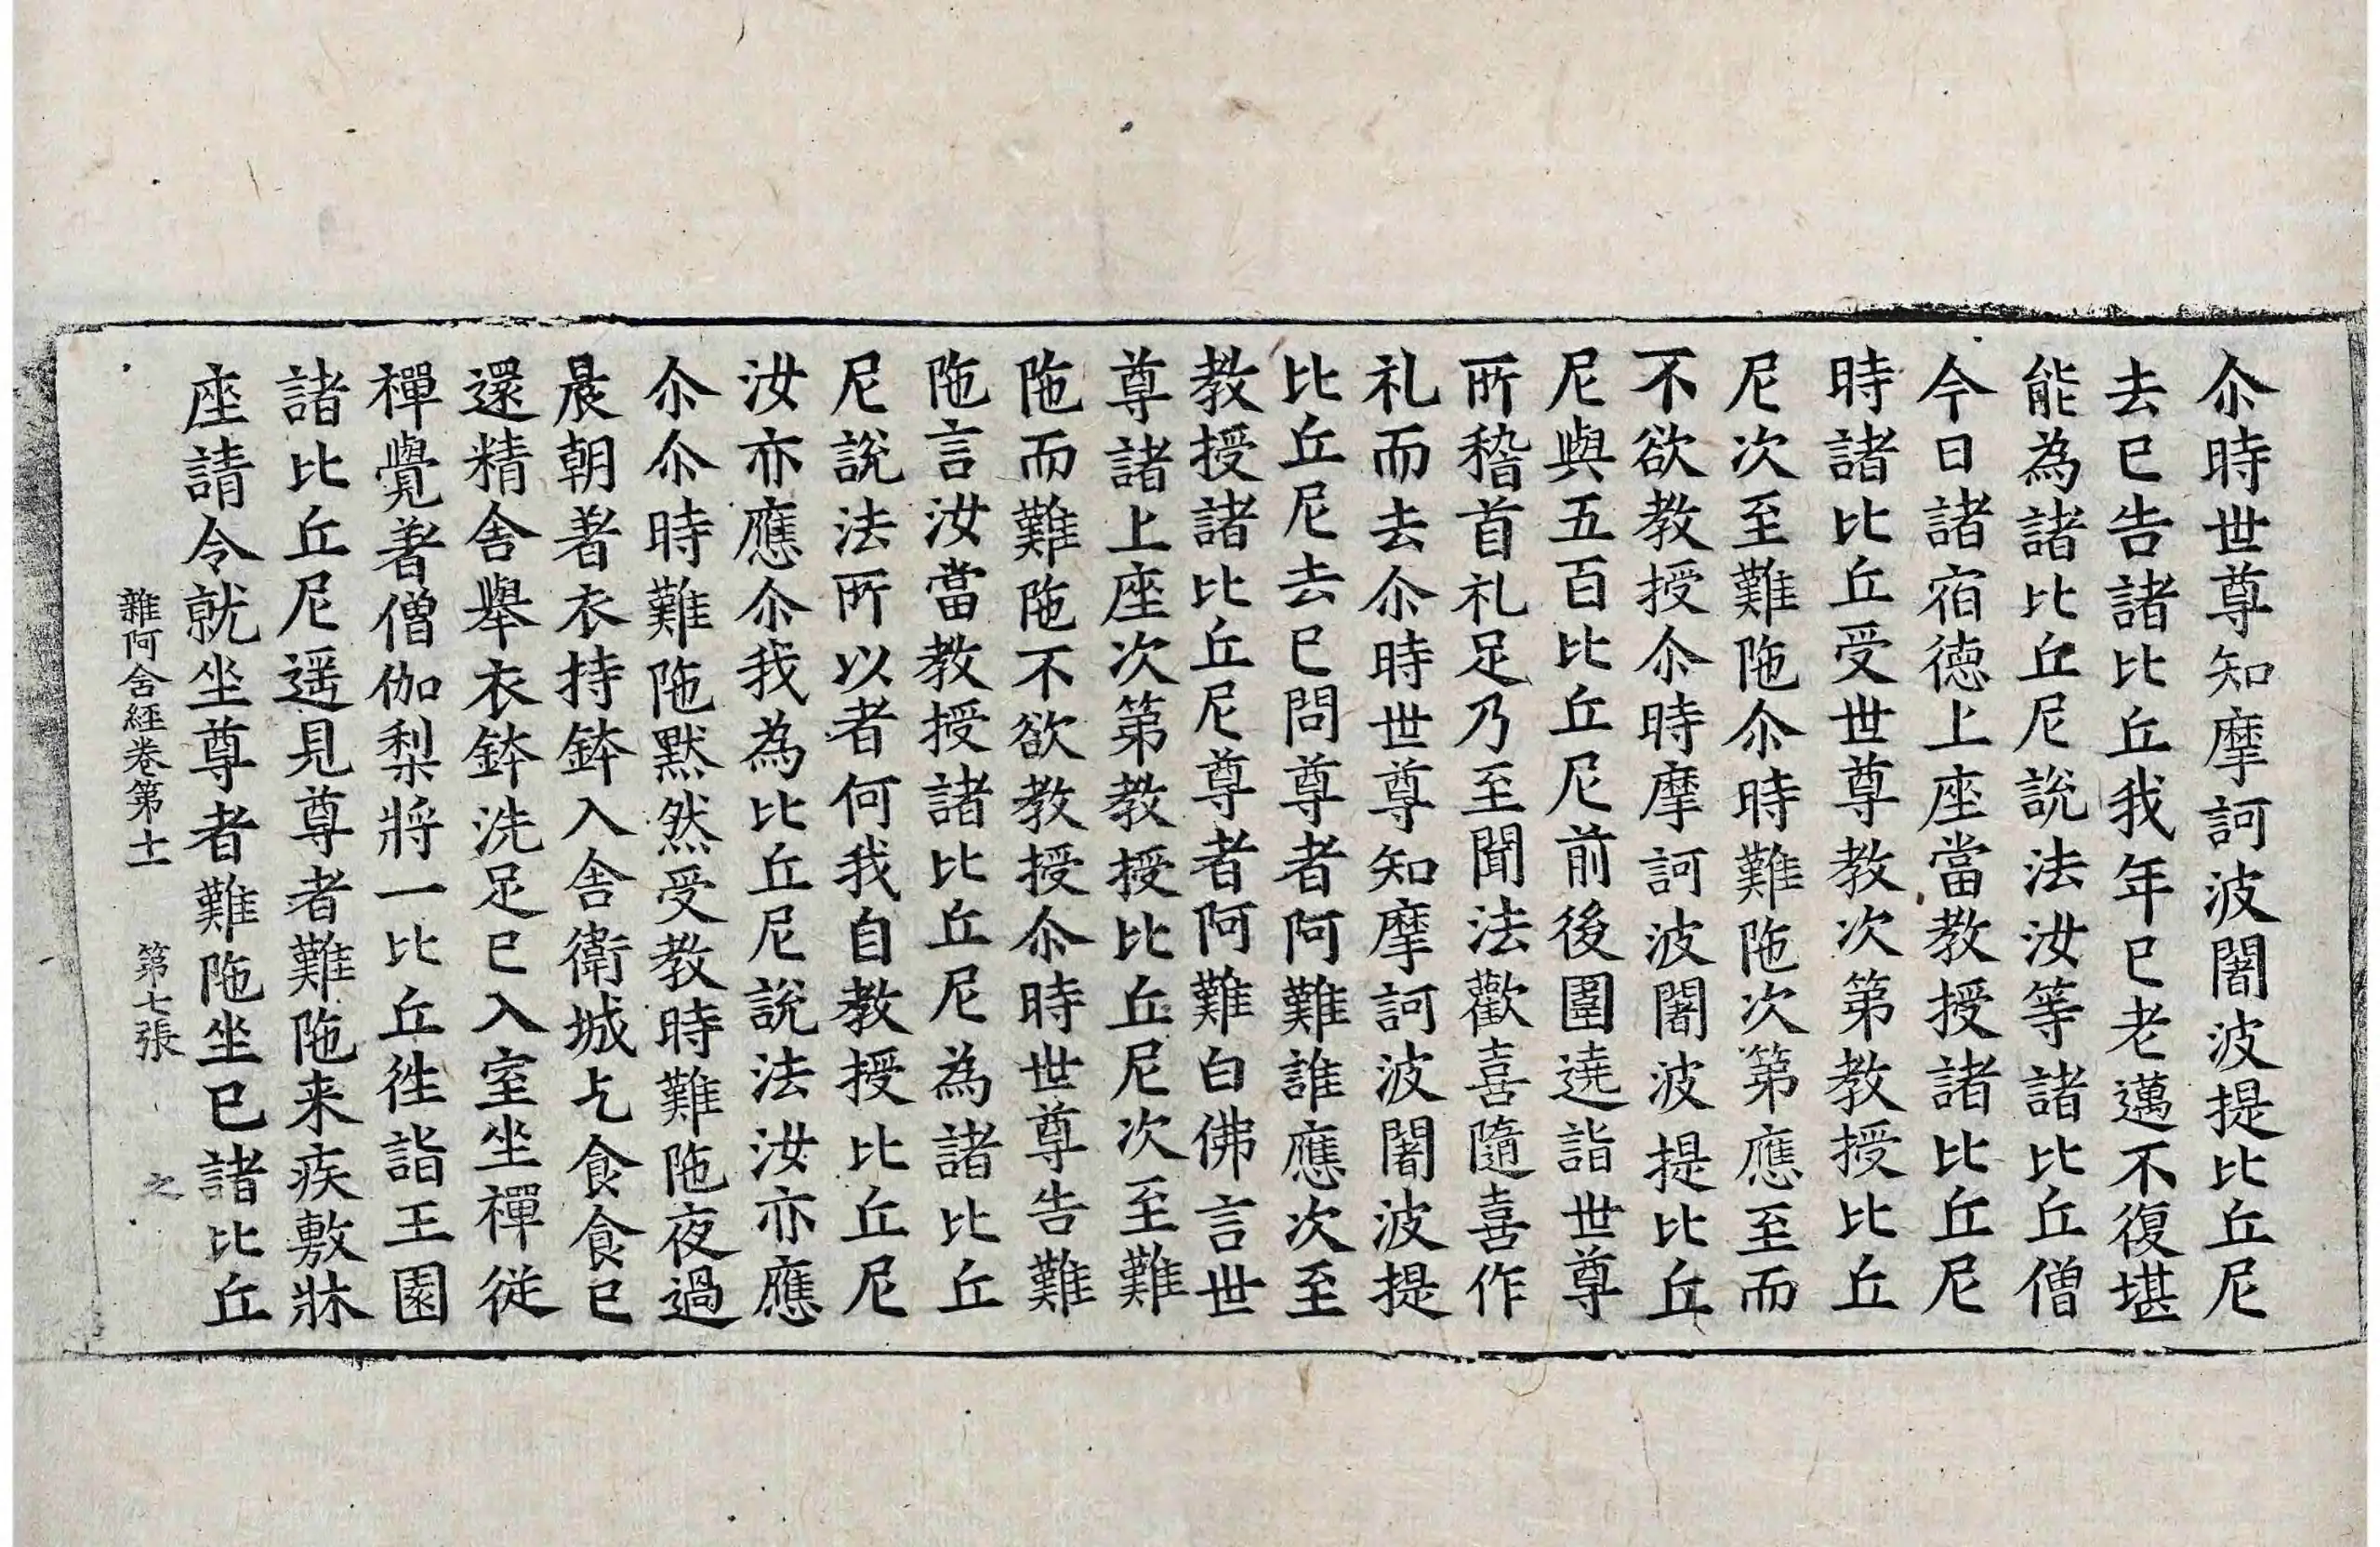 尒時世尊知摩訶波闍波提比丘尼
去已告諸比丘我年已老邁不復堪
能為諸比丘尼說法汝等諸比丘僧
今日諸宿德上座當教授諸比丘尼
時諸比丘受世尊教次第教授比丘
尼次至難陁尒時難陁次第應至而
不欲教授尒時摩訶波闍波提比丘
尼與五百比丘尼前後圍遶詣世尊
所稽首礼足乃至聞法歡喜隨喜作
礼而去尒時世尊知摩訶波闍波提
比丘尼去已問尊者阿難誰應次至
教授諸比丘尼尊者阿難白佛言世
尊諸上座次第教授比丘尼次至難
陁而難陁不欲教授尒時世尊告難
陁言汝當教授諸比丘尼為諸比丘
尼說法所以者何我自教授比丘尼
汝亦應尒我為比丘尼說法汝亦應
尒尒時難陁默然受教時難陁夜過
晨朝著衣持鉢入舍衛城乞食食已
還精舍舉衣鉢洗足已入室坐禪從
禪覺著僧伽梨將一比丘往詣王園
諸比丘尼遥見尊者難陁来疾敷牀
座請令就坐尊者難陁坐已諸比丘
雜阿含經卷第十一 第七張 之